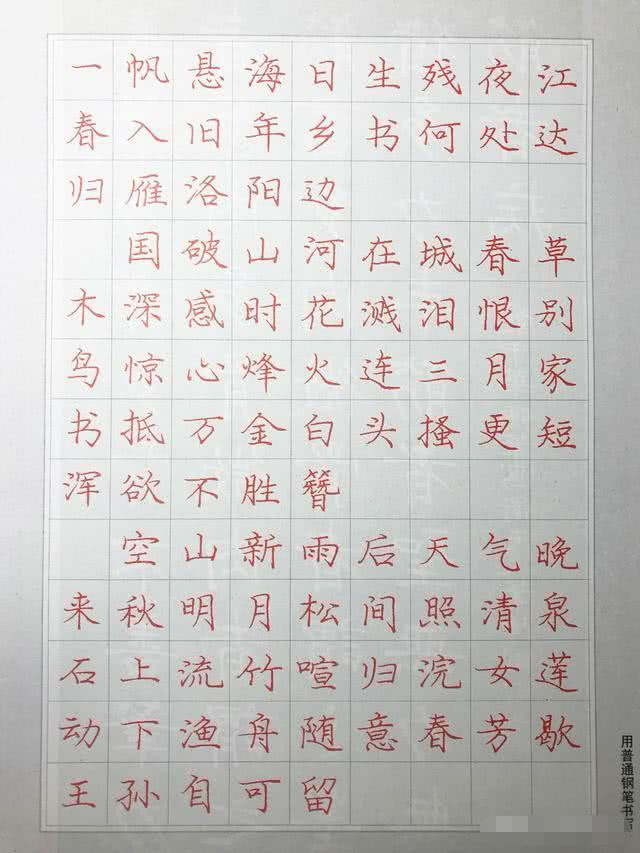 一帆悬海日生残夜江
春入旧年乡书何处达
归雁洛阳边
国破山河在城春草
木深感时花溅泪恨别
鸟惊心烽火连三月家
书抵万金白头搔更短
浑欲不胜簪
空山新雨后天气晚
来秋明月松间照清泉
石上流竹喧归浣女莲
动下渔舟随意春芳歇
王孙自可留
用普通钢笔书写